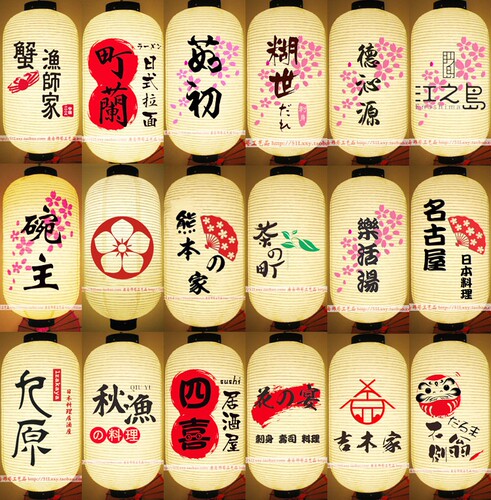 蟹
漁師家
町蘭
ラーメン
日式拉面
初
糊世
だれ
德沁源
江之島
碗主
熊本の家
茶の町
樂活湯
名古屋
日本料理
九原
日本料理居酒屋
秋漁
QIU YU
の料理
四喜
sushi
居酒屋
花の宴
刺身 壽司 料理
吉本家
だるま
不倒翁